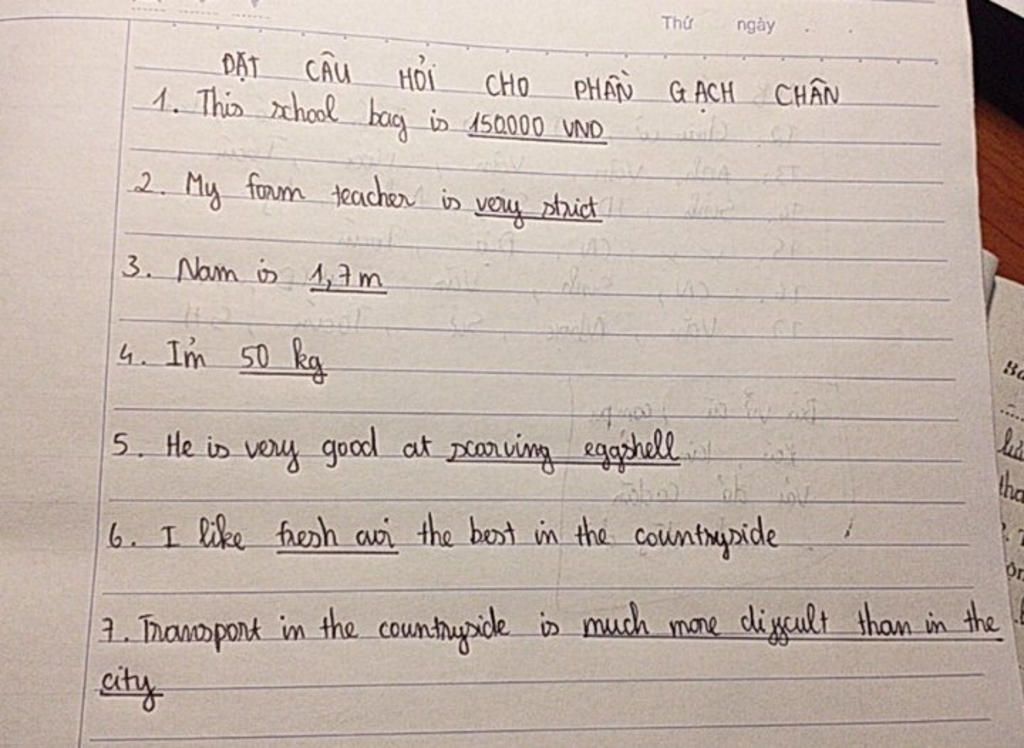 Thứ ngày . .
ĐẶT CÂU HỎI CHO PHẦN GẠCH CHÂN
1. This school bag is 150000 VND
2. My form teacher is very strict
3. Nam is 1,7m
4. I'm 50 kg
5. He is very good at scarving eggshell
6. I like fresh air the best in the countryside
7. Transport in the countryside is much more diffcult than in the
city